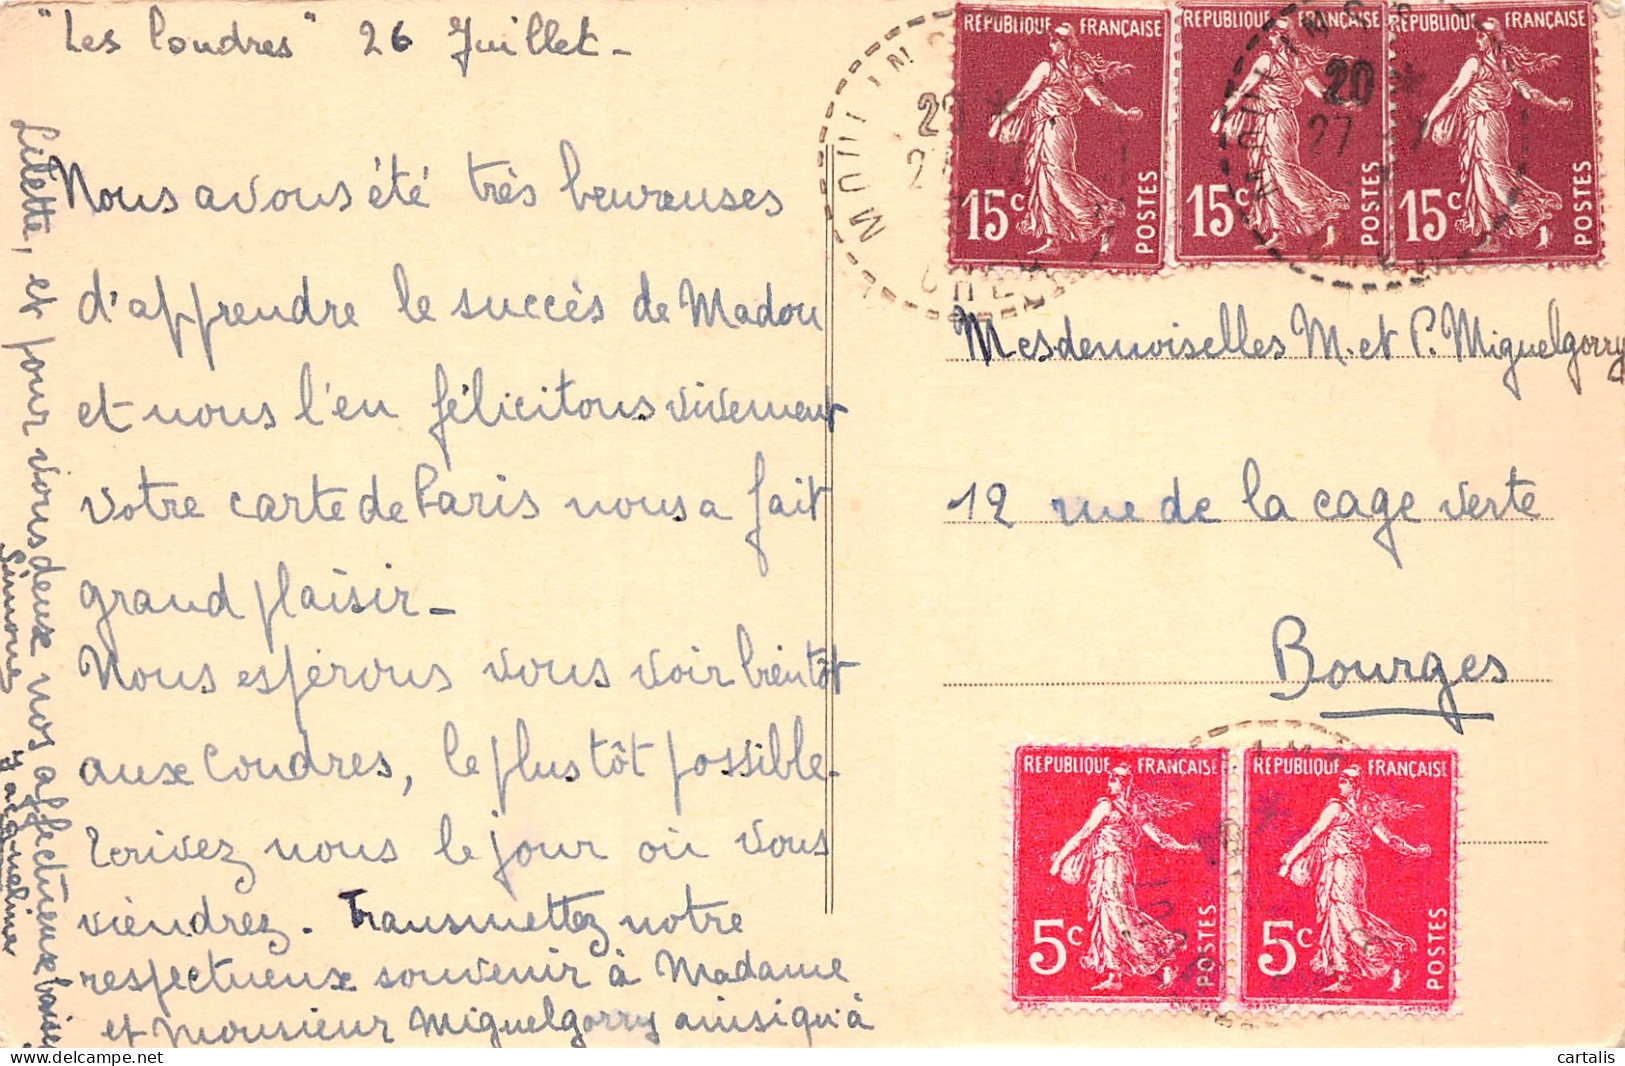 "Les Coudres" 26 Juillet -
Nous avons été très heureuses
d'apprendre le succès de Madou
et nous l'en félicitons vivement
Votre carte de Paris nous a fait
grand plaisir -
Nous espérons vous voir bientôt
aux Coudres, le plus tôt possible.
Ecrivez nous le jour où vous
viendrez. Transmettez notre
respectueux souvenir à Madame
et Monsieur Miguelgorry ainsi qu'à
Lilette, et pour vous deux nos affectueux baisers
Simone
Jacqueline
REPUBLIQUE FRANÇAISE
15c
POSTES
REPUBLIQUE FRANÇAISE
15c
POSTES
REPUBLIQUE FRANÇAISE
15c
POSTES
MOULINS
CHER
20 *
27 - 7
MOULINS
20 *
27 - 7
Mesdemoiselles M. et P. Miguelgorry
12 rue de la cage verte
Bourges
REPUBLIQUE FRANÇAISE
5c
POSTES
REPUBLIQUE FRANÇAISE
5c
POSTES
cartalis